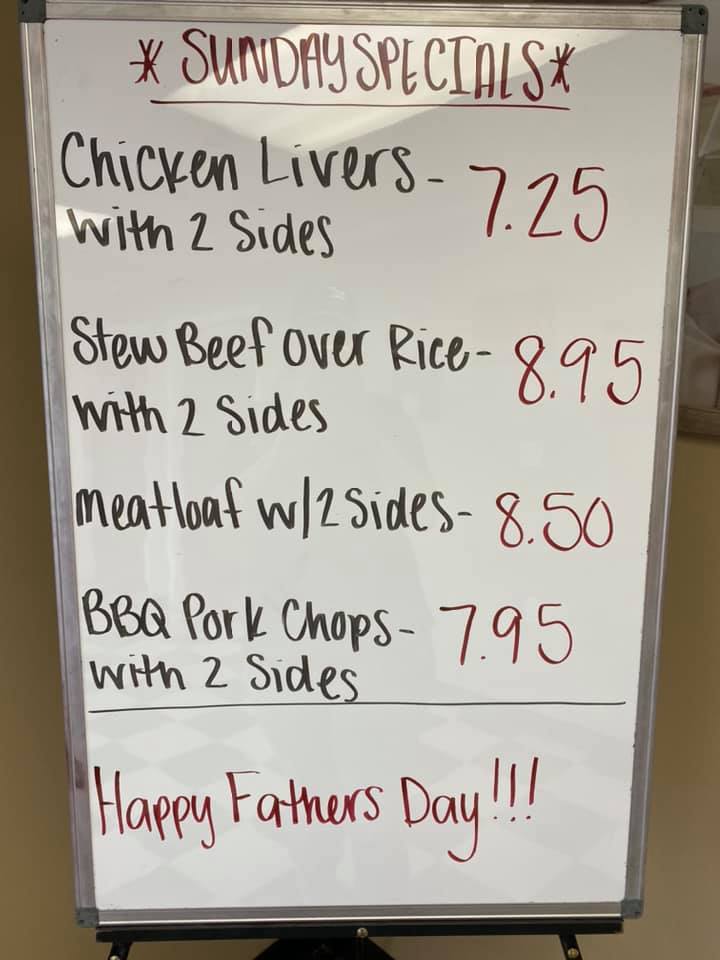 * SUNDAY SPECIALS *
Chicken Livers - 7.25
with 2 Sides
Stew Beef over Rice - 8.95
with 2 Sides
Meatloaf w/2 Sides - 8.50
BBQ Pork Chops - 7.95
with 2 Sides
Happy Fathers Day!!!